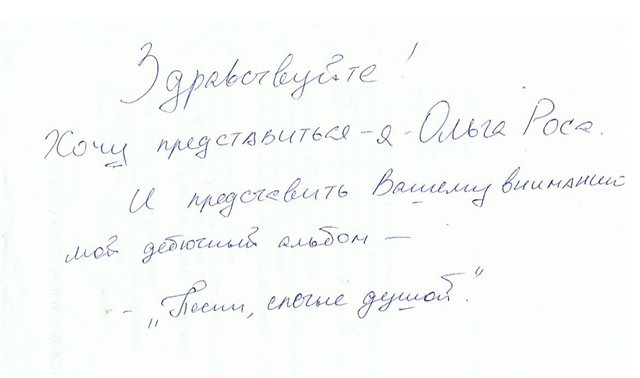 Здравствуйте!
Хочу представиться - я - Ольга Роса.
И представить Вашему внимании
мой дебютный альбом —
- „Песни, спетые душой."